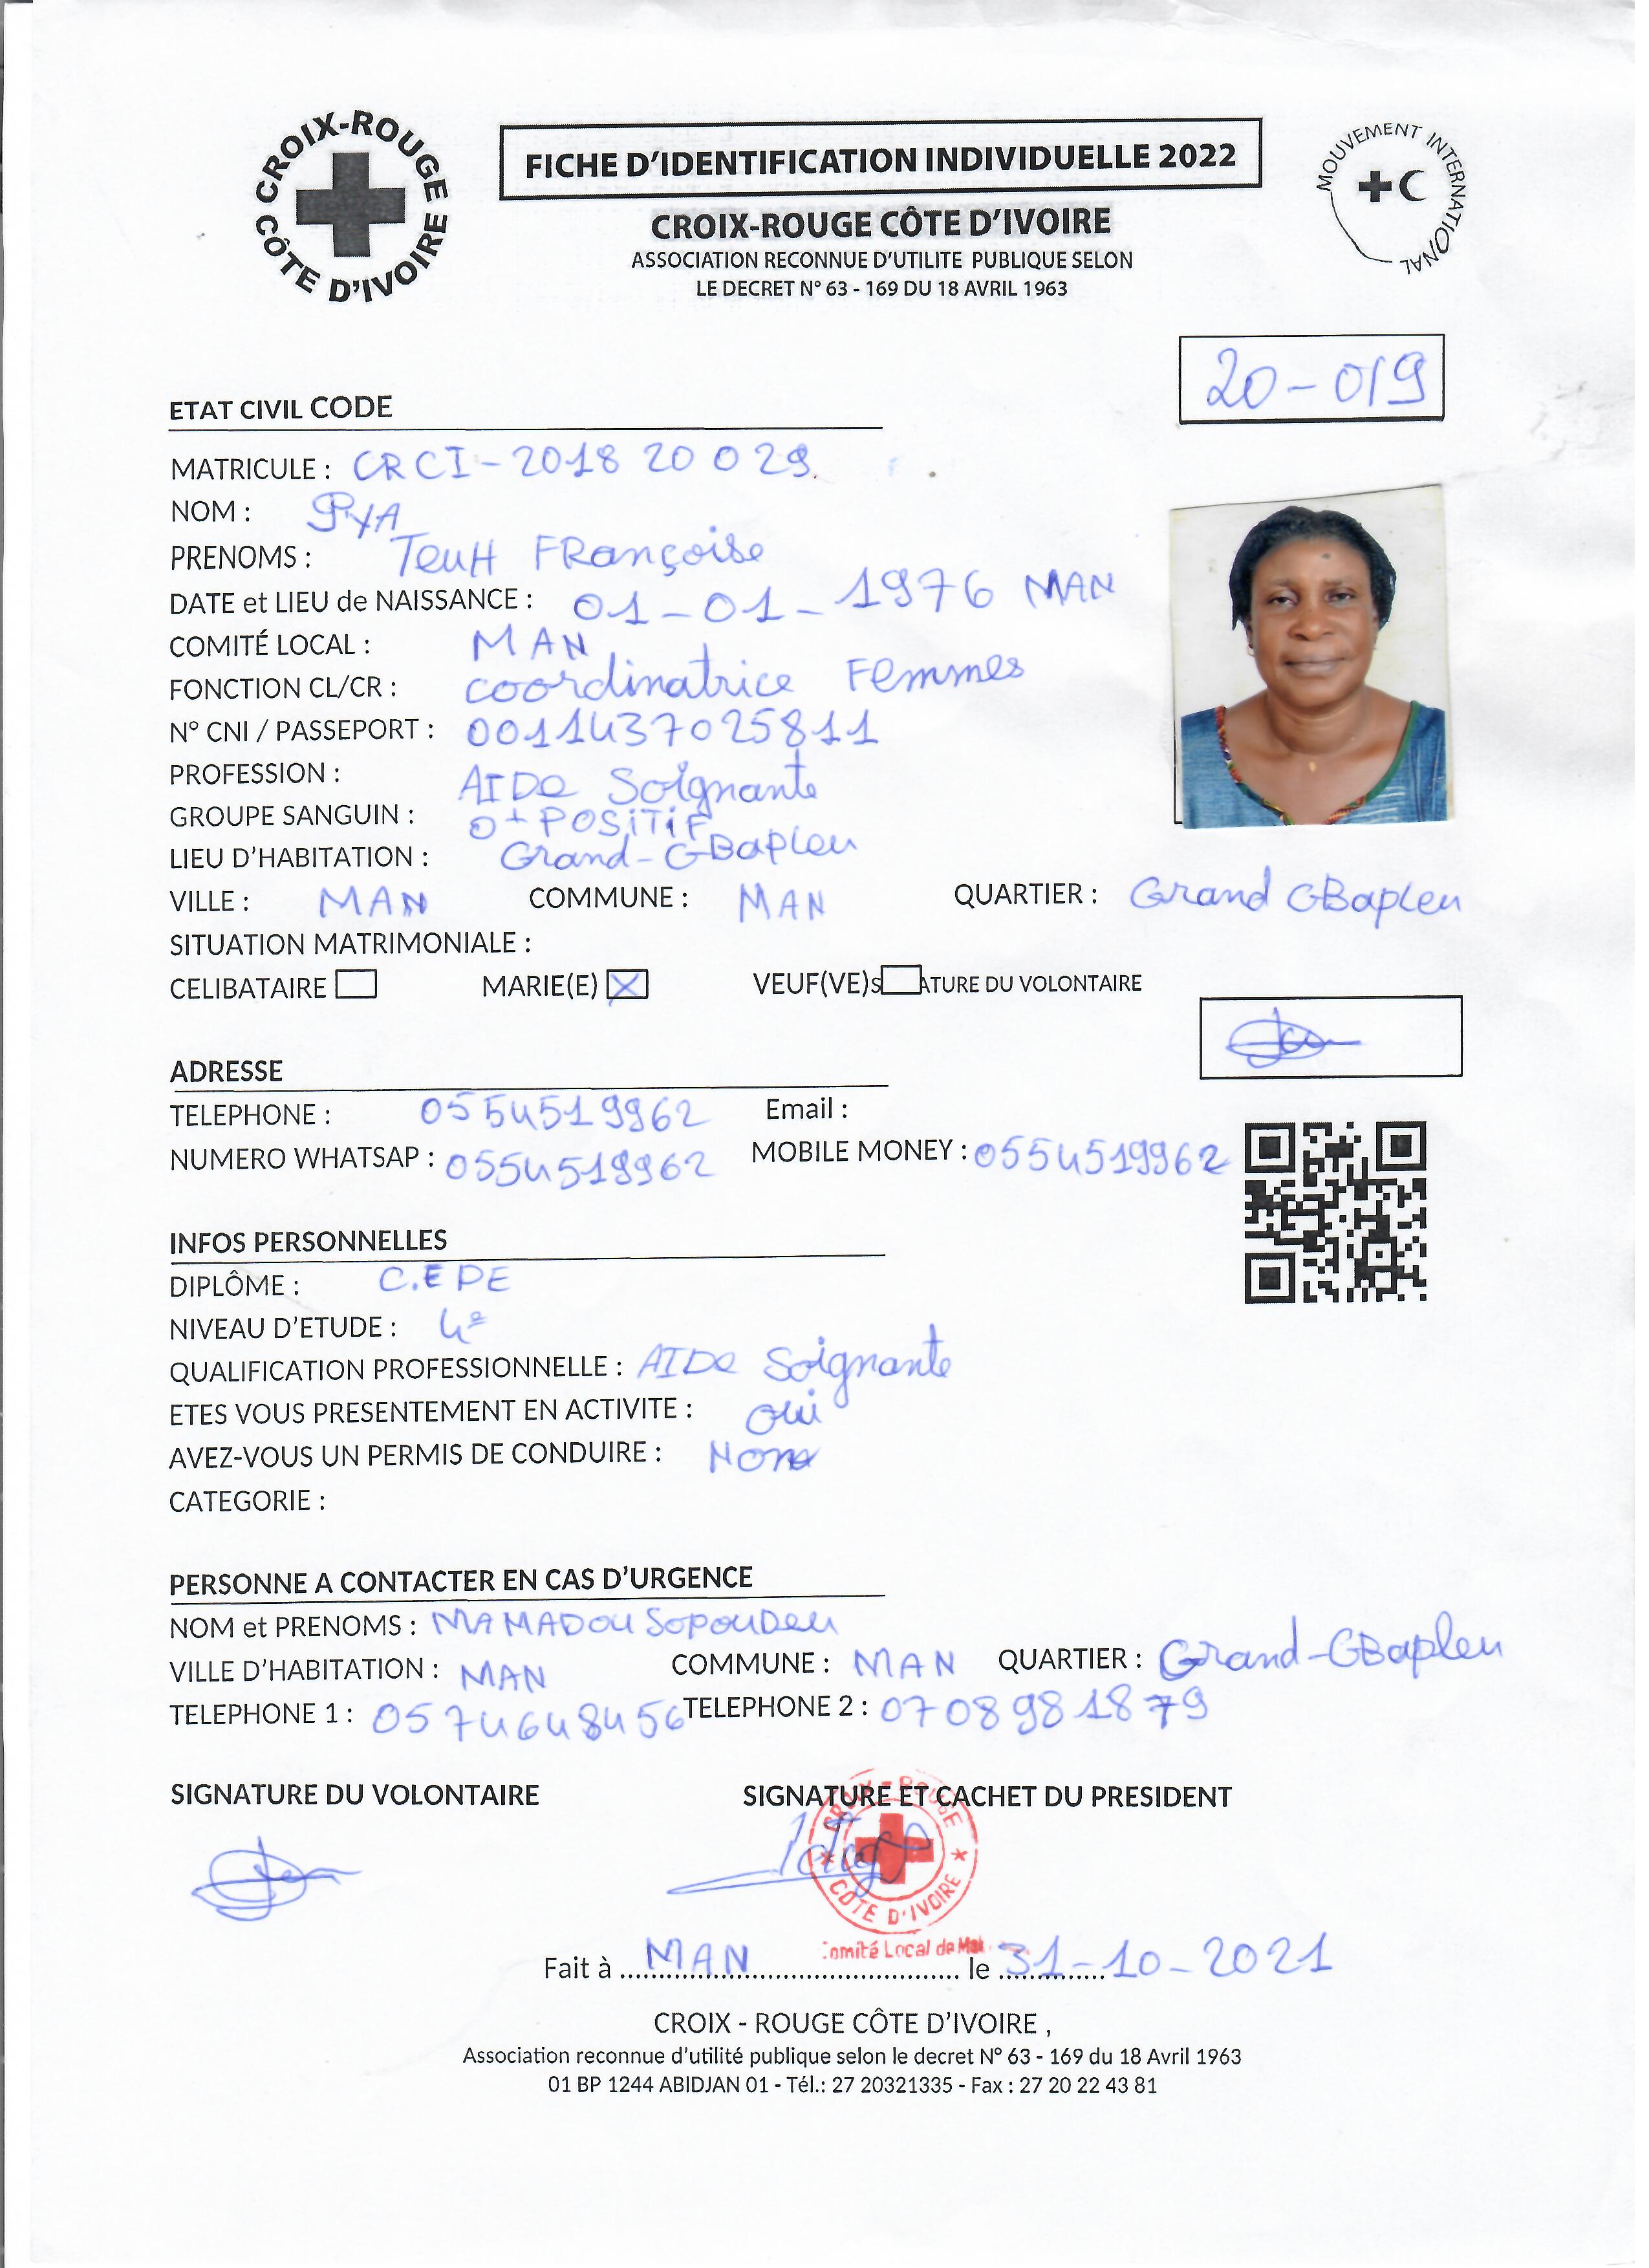 CROIX-ROUGE CÔTE D'IVOIRE
FICHE D'IDENTIFICATION INDIVIDUELLE 2022
MOUVEMENT INTERNATIONAL
CROIX-ROUGE CÔTE D'IVOIRE
ASSOCIATION RECONNUE D'UTILITE PUBLIQUE SELON
LE DECRET N° 63 - 169 DU 18 AVRIL 1963
20-019
ETAT CIVIL CODE
MATRICULE : CRCI-2018 20 029.
NOM : PYA
PRENOMS : TeuH FRançoise
DATE et LIEU de NAISSANCE : 01-01-1976 MAN
COMITÉ LOCAL : MAN
FONCTION CL/CR : coordinatrice Femmes
N° CNI / PASSEPORT : 0011437025811
PROFESSION : AIDe Soignante
GROUPE SANGUIN : O+ POSiTiF
LIEU D'HABITATION : Grand-GBapleu
VILLE : MAN COMMUNE : MAN QUARTIER : Grand GBapleu
SITUATION MATRIMONIALE :
CELIBATAIRE MARIE(E) X VEUF(VE) ATURE DU VOLONTAIRE
ADRESSE
TELEPHONE : 0554519962 Email :
NUMERO WHATSAP : 0554519962 MOBILE MONEY : 0554519962
INFOS PERSONNELLES
DIPLÔME : C.EPE
NIVEAU D'ETUDE : 4e
QUALIFICATION PROFESSIONNELLE : AIDe Soignante
ETES VOUS PRESENTEMENT EN ACTIVITE : oui
AVEZ-VOUS UN PERMIS DE CONDUIRE : Non
CATEGORIE :
PERSONNE A CONTACTER EN CAS D'URGENCE
NOM et PRENOMS : MAMADou SopouDeu
VILLE D'HABITATION : MAN COMMUNE : MAN QUARTIER : Grand-GBapleu
TELEPHONE 1 : 0574648456 TELEPHONE 2 : 0708981879
SIGNATURE DU VOLONTAIRE SIGNATURE ET CACHET DU PRESIDENT
CROIX-ROUGE CÔTE D'IVOIRE
Comité Local de Man
Fait à MAN le 31-10-2021
CROIX - ROUGE CÔTE D'IVOIRE ,
Association reconnue d'utilité publique selon le decret N° 63 - 169 du 18 Avril 1963
01 BP 1244 ABIDJAN 01 - Tél.: 27 20321335 - Fax : 27 20 22 43 81